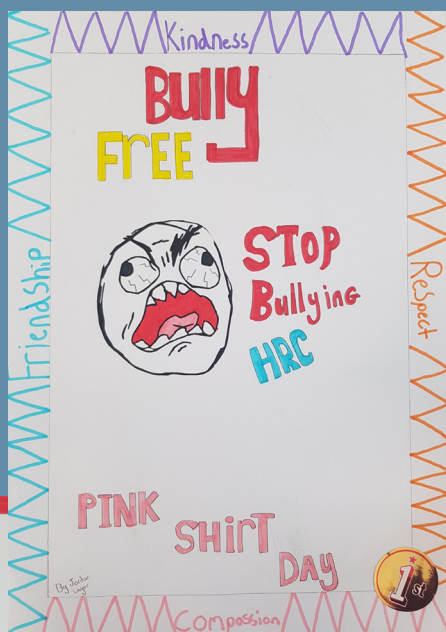 Kindness
Bully
FrEE
Friendship
STOP
Bullying
HRC
Respect
PINK
SHirT
DAY
By
1st
Compassion